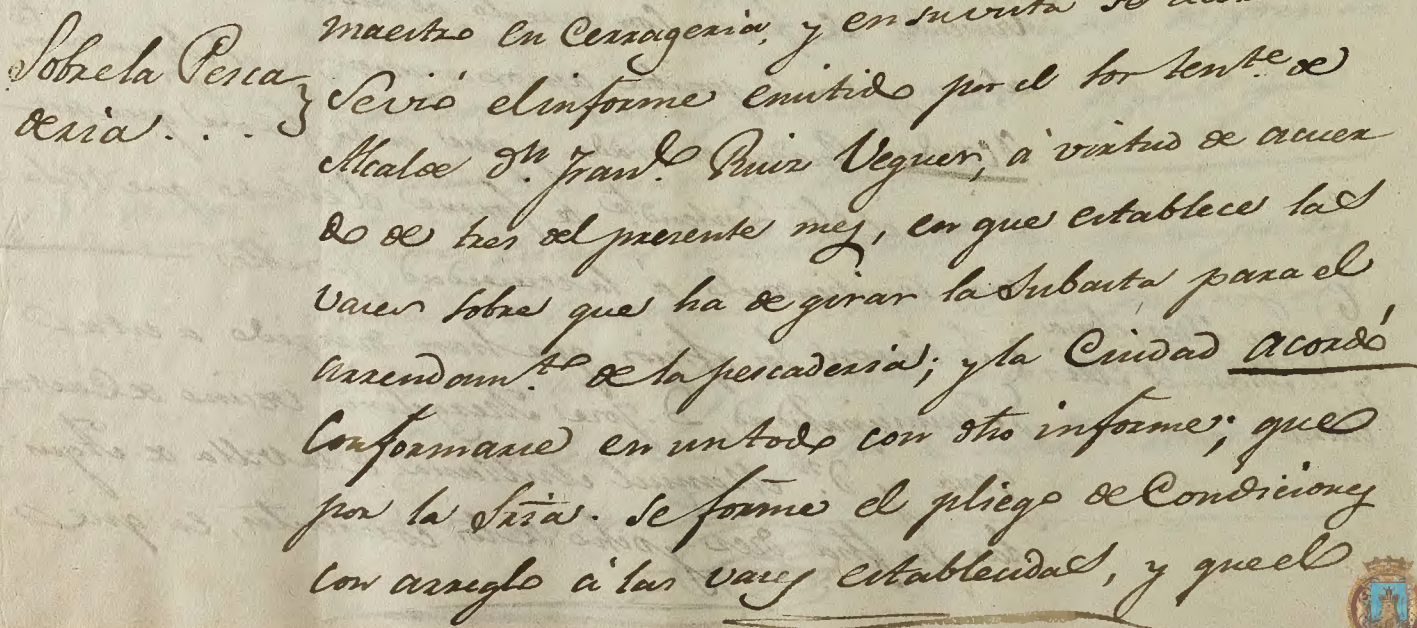 maestro en Cerrageria, y en su vista se
Sobre la Pesca
deria . . .
Sevió el informe emitido por el Sor tente de
Alcalde Dn. Franco. Ruiz Veguer, á virtud de acuer
do de tres del presente mes, en que establece las
vaces sobre que ha de girar la Subasta para el
arrendamto. de la pescaderia; y la Ciudad acordó
Conformarse en un todo con dho informe; que
por la Sria. se forme el pliego de Condiciones
con arreglo á las vaces establecidas, y que el